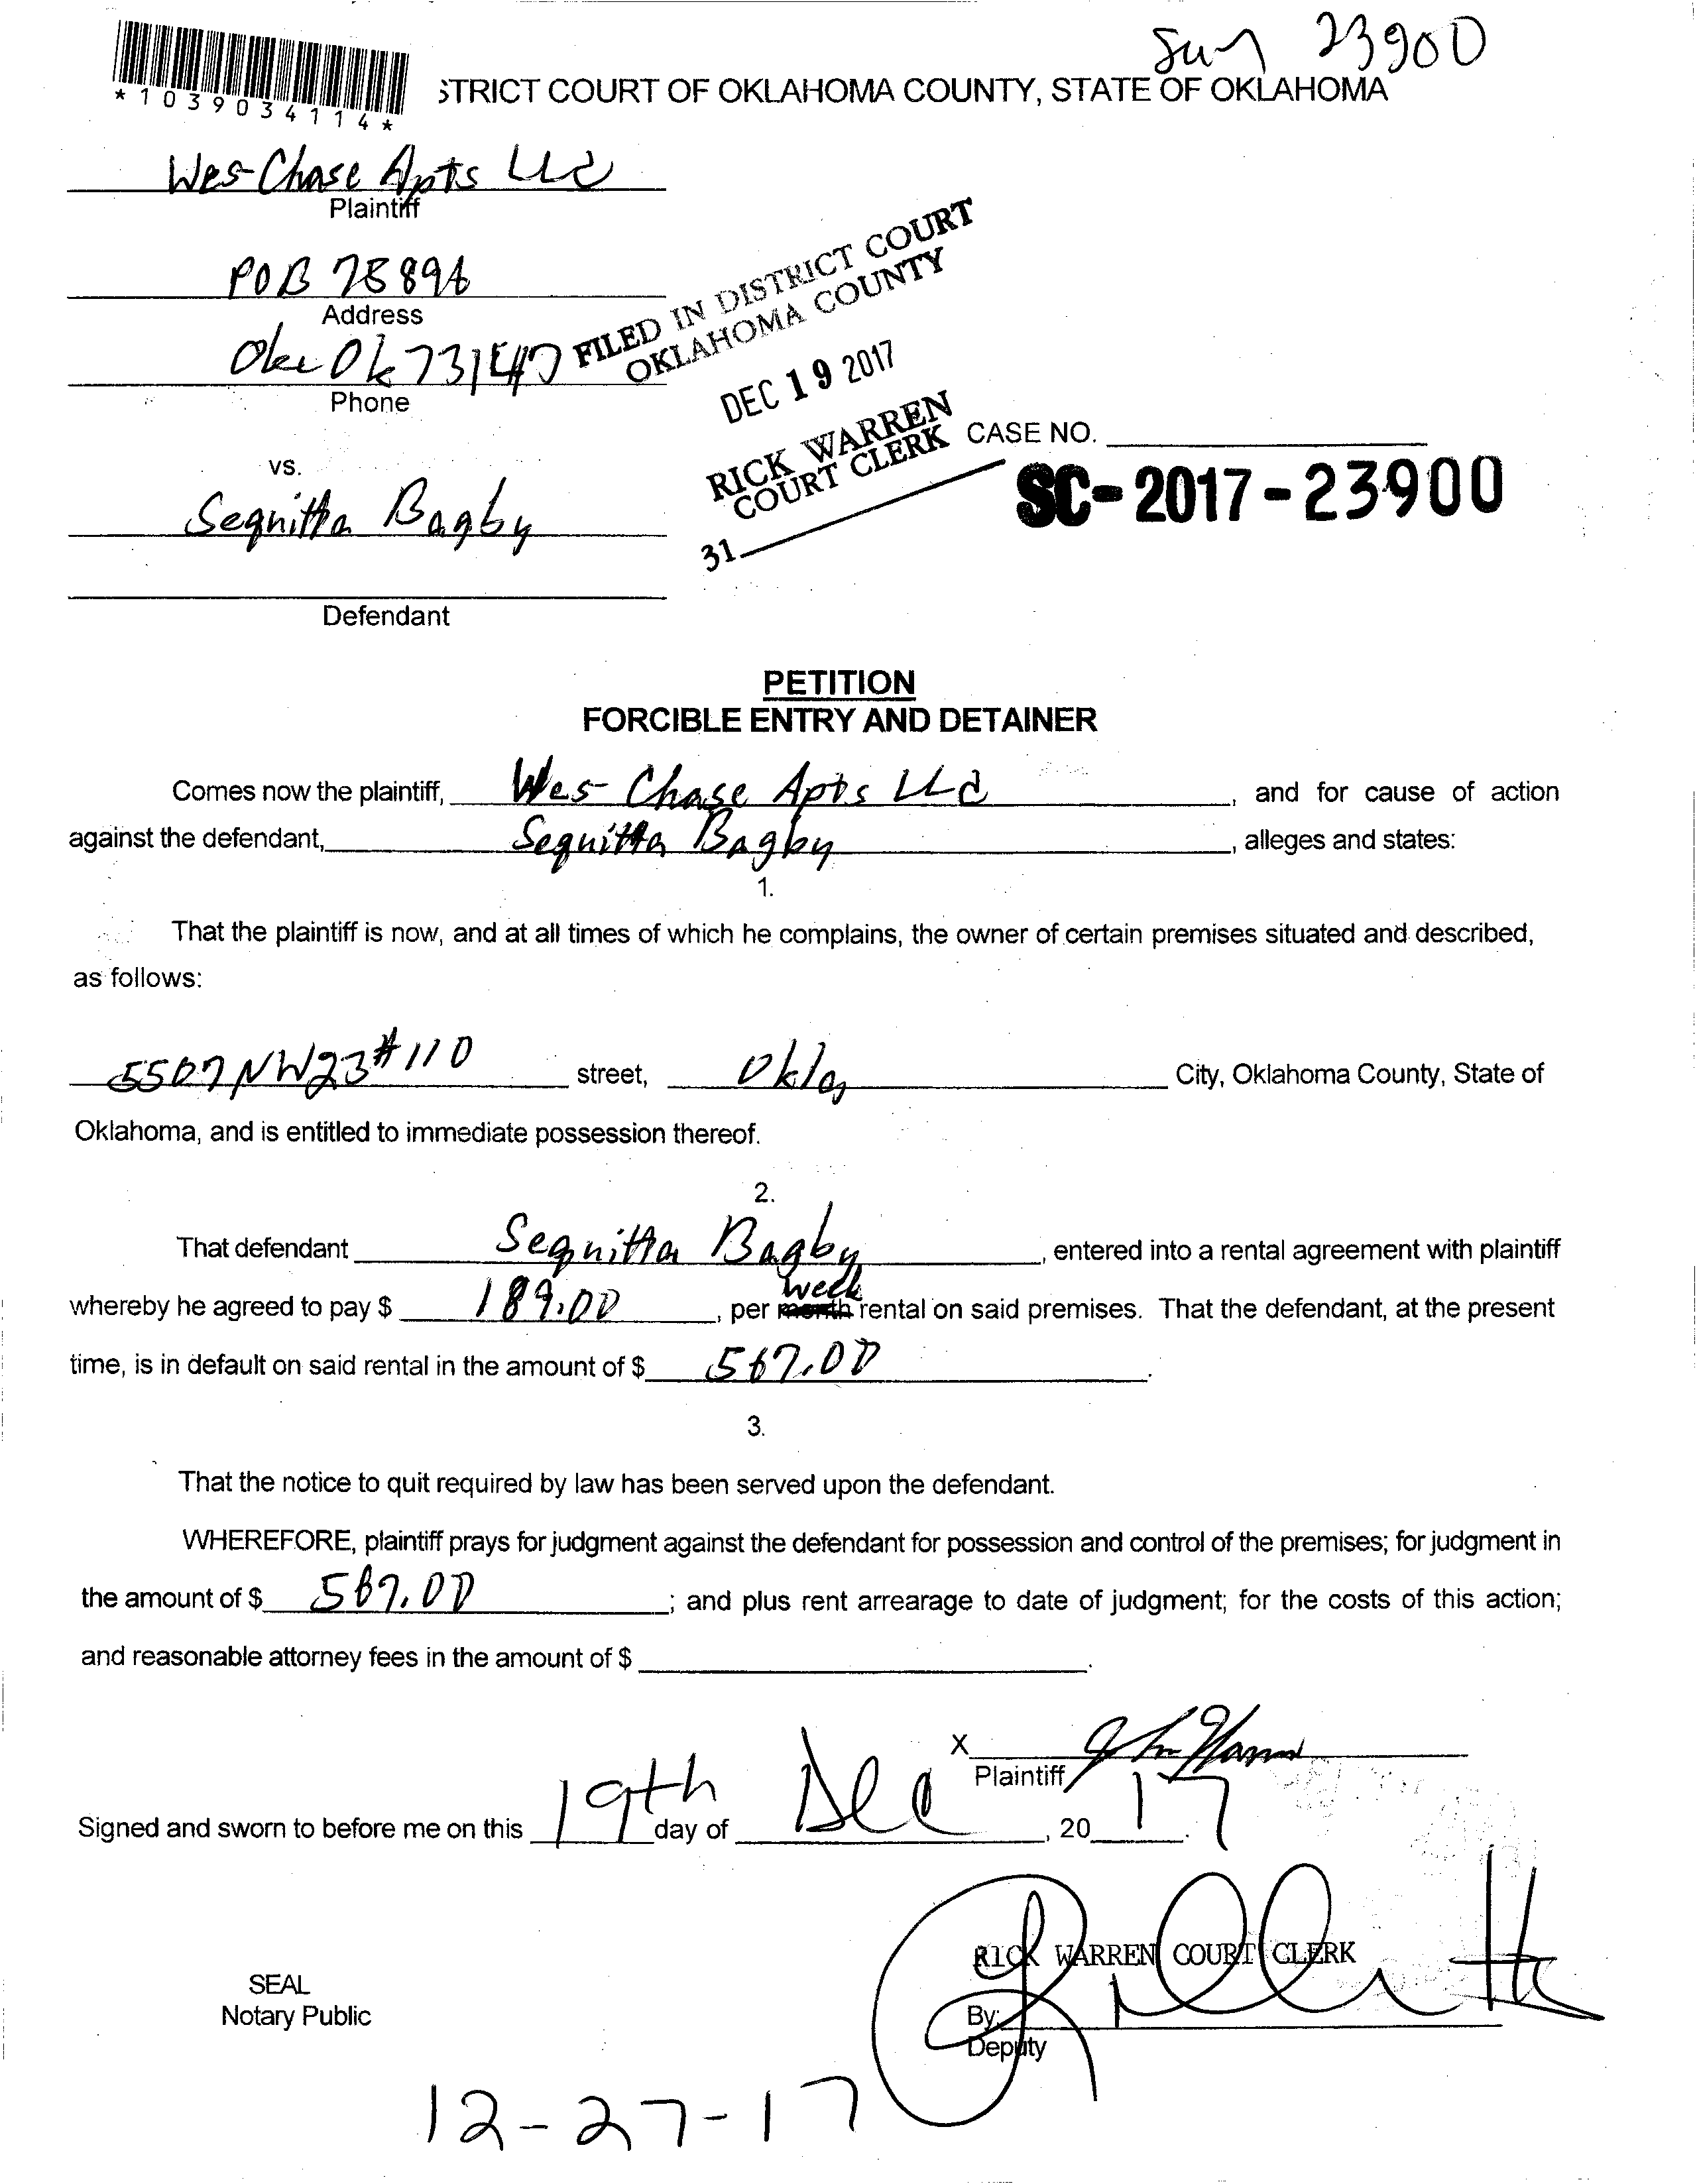 23900
*1039034114*
STRICT COURT OF OKLAHOMA COUNTY, STATE OF OKLAHOMA
Wes-Chase Apts LLC
Plaintiff
POB
Address
Ok
Phone
FILED IN DISTRICT COURT
OKLAHOMA COUNTY
DEC 19 2017
RICK WARREN
COURT CLERK
31
CASE NO.
SC-2017-23900
vs.
Sequitta Bagby
Defendant
PETITION
FORCIBLE ENTRY AND DETAINER
Comes now the plaintiff, Wes-Chase Apts LLC, and for cause of action
against the defendant, Sequitta Bagby, alleges and states:
1.
That the plaintiff is now, and at all times of which he complains, the owner of certain premises situated and described,
as follows:
5507 NW23 #110 street, Okla City, Oklahoma County, State of
Oklahoma, and is entitled to immediate possession thereof.
2.
That defendant Sequitta Bagby, entered into a rental agreement with plaintiff
week
whereby he agreed to pay $ 189.00, per month rental on said premises. That the defendant, at the present
time, is in default on said rental in the amount of $ 567.00.
3.
That the notice to quit required by law has been served upon the defendant.
WHEREFORE, plaintiff prays for judgment against the defendant for possession and control of the premises; for judgment in
the amount of $ 567.00; and plus rent arrearage to date of judgment; for the costs of this action;
and reasonable attorney fees in the amount of $.
X
Plaintiff
Signed and sworn to before me on this 19th day of Dec, 20 17.
RICK WARREN COURT CLERK
SEAL
Notary Public
By:
Deputy
12-27-17